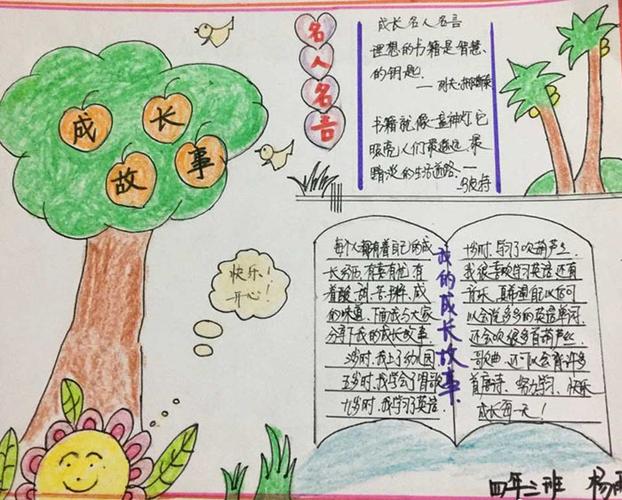 成长故事
名人名言
成长名人名言
理想的书籍是智慧
的钥匙
书籍就像一盏神灯,它
照亮人们最遥远、最
暗淡的生活道路.
快乐!
开心!
我的成长故事
每个人都有着自己的成
长经历,有喜有忧,有
着酸、甜、苦、辣、咸
的味道.下面我与大家
分享下我的成长故事.
岁时,我上了幼儿园
五岁时,我学会了唱歌
九岁时,我学习了英语.
岁时,学习了吹葫芦丝.
我很喜欢学习英语还有
音乐,真希望自己以后可
以会说多多的英语单词
还会吹很多首葫芦丝
歌曲,还可以会背许多
首唐诗,努力学习,快乐
成长每一天!
四年二班 杨